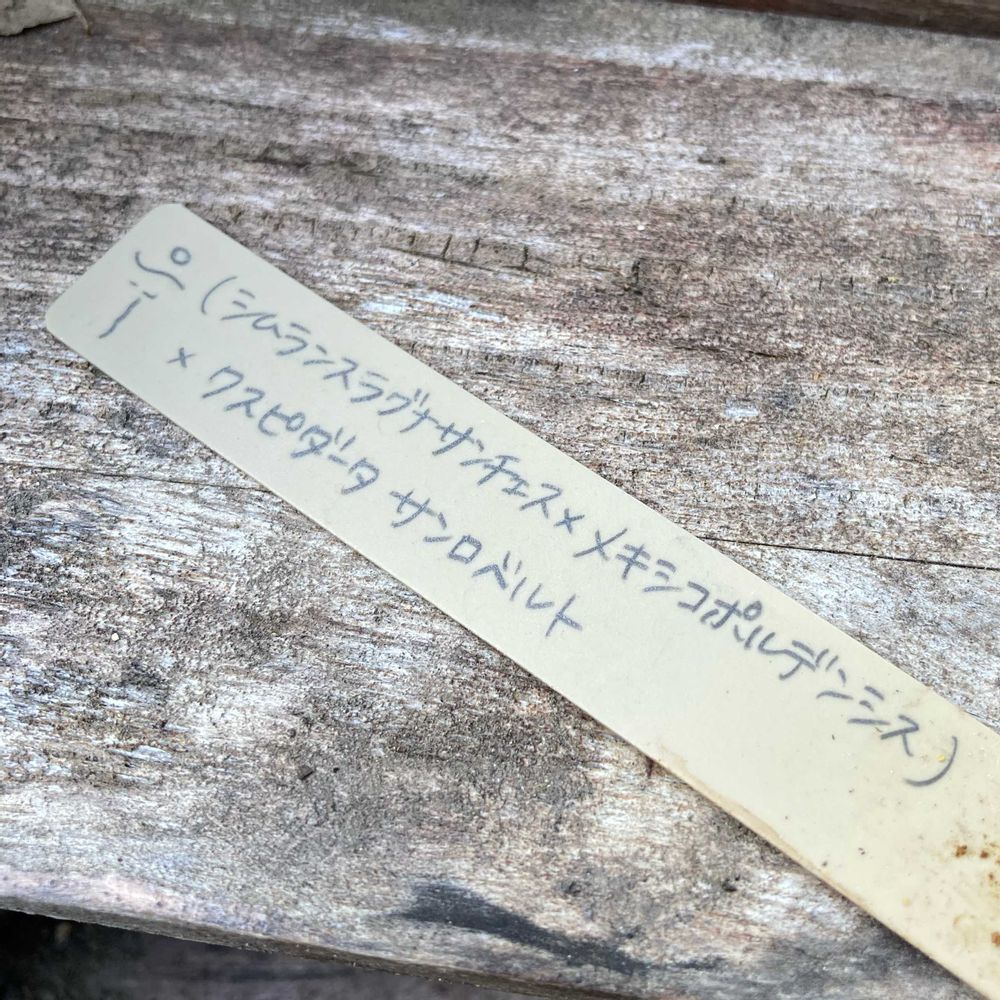 (シムランスラグナサンチェス×メキシコポルデンシス)
×クスピダータ サンロベルト